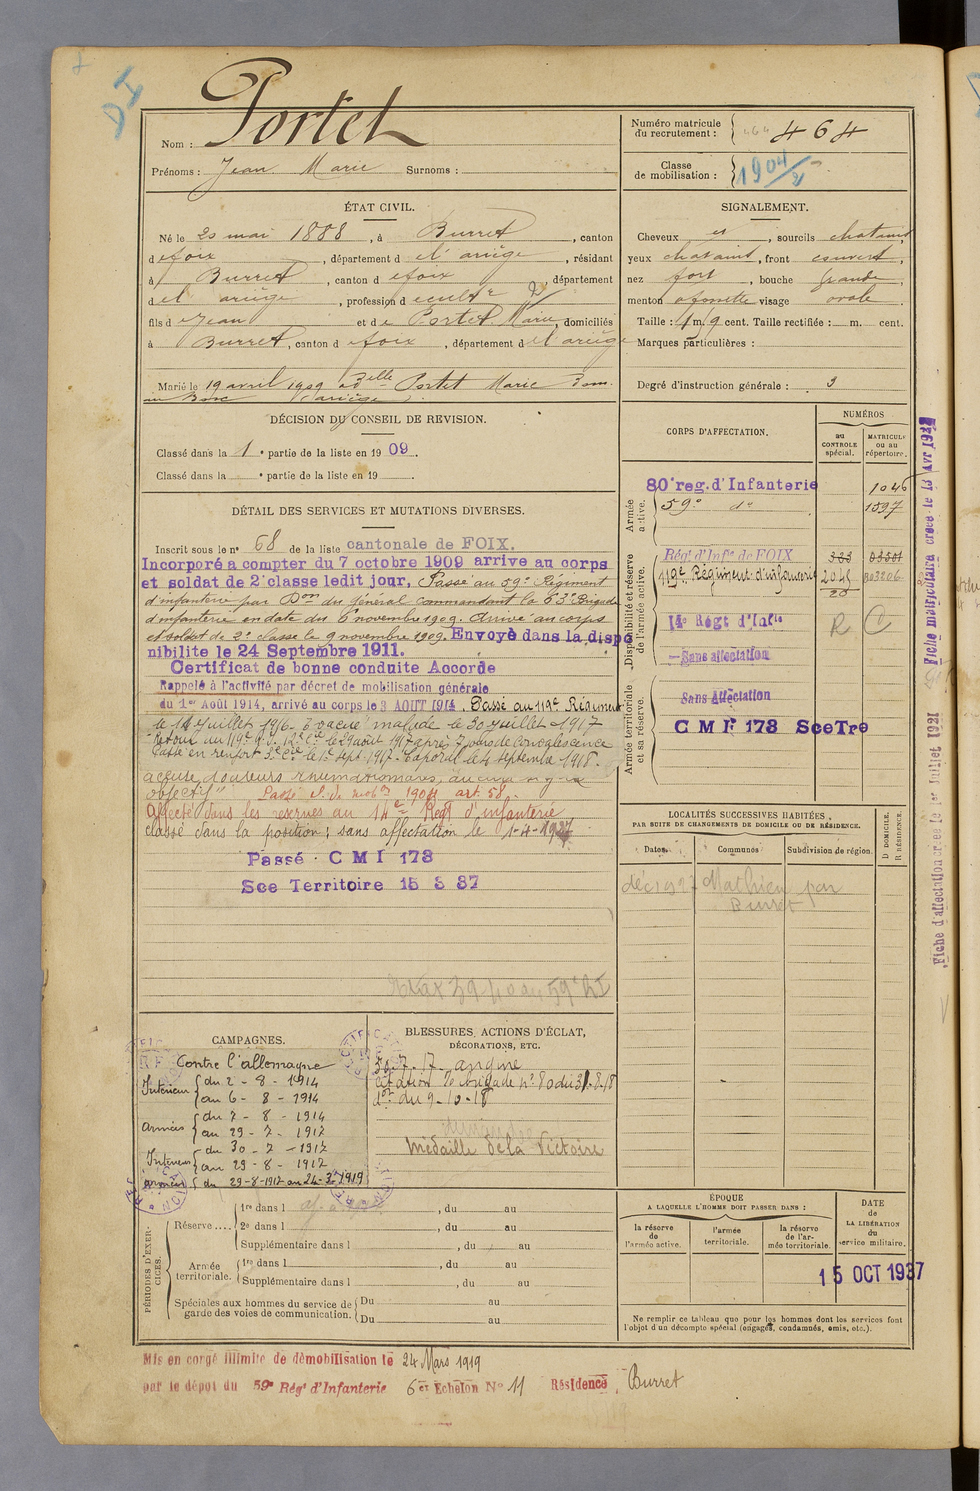 Nom : Portet
Prénoms : Jean Marie Surnoms :
Numéro matricule du recrutement : 464 464
Classe de mobilisation : 1904/2
ÉTAT CIVIL.
Né le 20 mai 1888, à Burret, canton
de foix, département de l'ariège, résidant
à Burret, canton de foix, département
de l'ariège, profession de cultr
fils de Jean et de Portet Marie, domiciliés
à Burret, canton de foix, département de l'ariège
Marié le 19 avril 1909 à Delle Portet Marie Dom.
au Bosc (ariège).
SIGNALEMENT.
Cheveux et, sourcils chatains
yeux chatains, front couvert,
nez fort, bouche grande,
menton à fossette visage ovale.
Taille : 1 m. 59 cent. Taille rectifiée : m. cent.
Marques particulières :
Degré d'instruction générale : 3
DÉCISION DU CONSEIL DE REVISION.
Classé dans la 1e partie de la liste en 1909.
Classé dans la e partie de la liste en 19 .
DÉTAIL DES SERVICES ET MUTATIONS DIVERSES.
Inscrit sous le n° 68 de la liste cantonale de FOIX.
Incorporé a compter du 7 octobre 1909 arrive au corps
et soldat de 2e classe ledit jour. Passé au 59e Régiment
d'infanterie par Don du Général commandant la 63e Brigade
d'infanterie en date du 6 novembre 1909. Arrivé au corps
et soldat de 2e classe le 9 novembre 1909. Envoyé dans la dispo
nibilite le 24 Septembre 1911.
Certificat de bonne conduite Accorde
Rappelé à l'activité par décret de mobilisation générale
du 1er Août 1914, arrivé au corps le 3 AOUT 1914. Passé au 119e Régiment
le 14 Juillet 1916. Evacué malade le 30 juillet 1917
Retour au 119e R.I. 12e Cie le 29 août 1917 après 7 jours de convalescence
Passé en renfort 3e Cie le 1er sept. 1917. Caporal le 4 septembre 1918.
accuse douleurs rhumatismales, aucun signe
objectif" Passé cl. de mobon 1904 art. 58.
Affecté dans les reserves au 14e Regt d'infanterie
classé dans la position: sans affectation le 1-4-1927
Passé . C M I 173
Sce Territoire 15 3 37
59e RI
CORPS D'AFFECTATION.
NUMÉROS
au CONTROLE spécial.
MATRICULE ou au répertoire.
Armée active.
80e reg. d'Infanterie 1046
59e do 1597
Disponibilité et réserve de l'armée active.
Régt d'Infie de FOIX 333
119e Régiment d'infanterie 2045
20
14e Régt d'Infie R C
Sans affectation
Armée territoriale et sa réserve.
Sans Affectation
C M I 173 Sce Tre
LOCALITÉS SUCCESSIVES HABITÉES,
PAR SUITE DE CHANGEMENTS DE DOMICILE OU DE RÉSIDENCE.
Dates. Communes Subdivision de région.
D DOMICILE.
R RÉSIDENCE.
déc 1927 Mathieu par
Burret
CAMPAGNES.
Contre l'allemagne
Intérieur du 2 - 8 - 1914
au 6 - 8 - 1914
Armées du 7 - 8 - 1914
au 29 - 7 - 1917
Intérieur du 30 - 7 - 1917
au 29 - 8 - 1917
Armées du 29-8-1917 au 24-3-1919
BLESSURES, ACTIONS D'ÉCLAT,
DÉCORATIONS, ETC.
30.7.17 angine
Citation brigade n° 80 du 31.8.18
do du 9-10-18
Médaille de la Victoire
PÉRIODES D'EXERCICES.
Réserve....
1re dans l , du au
2e dans l , du au
Supplémentaire dans l , du au
Armée territoriale.
1re dans l , du au
Supplémentaire dans l , du au
Spéciales aux hommes du service de garde des voies de communication.
Du au
Du au
ÉPOQUE
A LAQUELLE L'HOMME DOIT PASSER DANS :
la réserve de l'armée active.
l'armée territoriale.
la réserve de l'armée territoriale.
DATE de LA LIBÉRATION du service militaire.
15 OCT 1937
Ne remplir ce tableau que pour les hommes dont les services font
l'objet d'un décompte spécial (engagés, condamnés, omis, etc.).
Mis en congé illimité de démobilisation le 24 Mars 1919
par le dépôt du 59e Régt d'Infanterie 6er Echelon N° 11 Résidence : Burret
Fiche matriculaire créée le 13 Avr 1928
Fiche d'affectation créée le 1er Juillet 1921